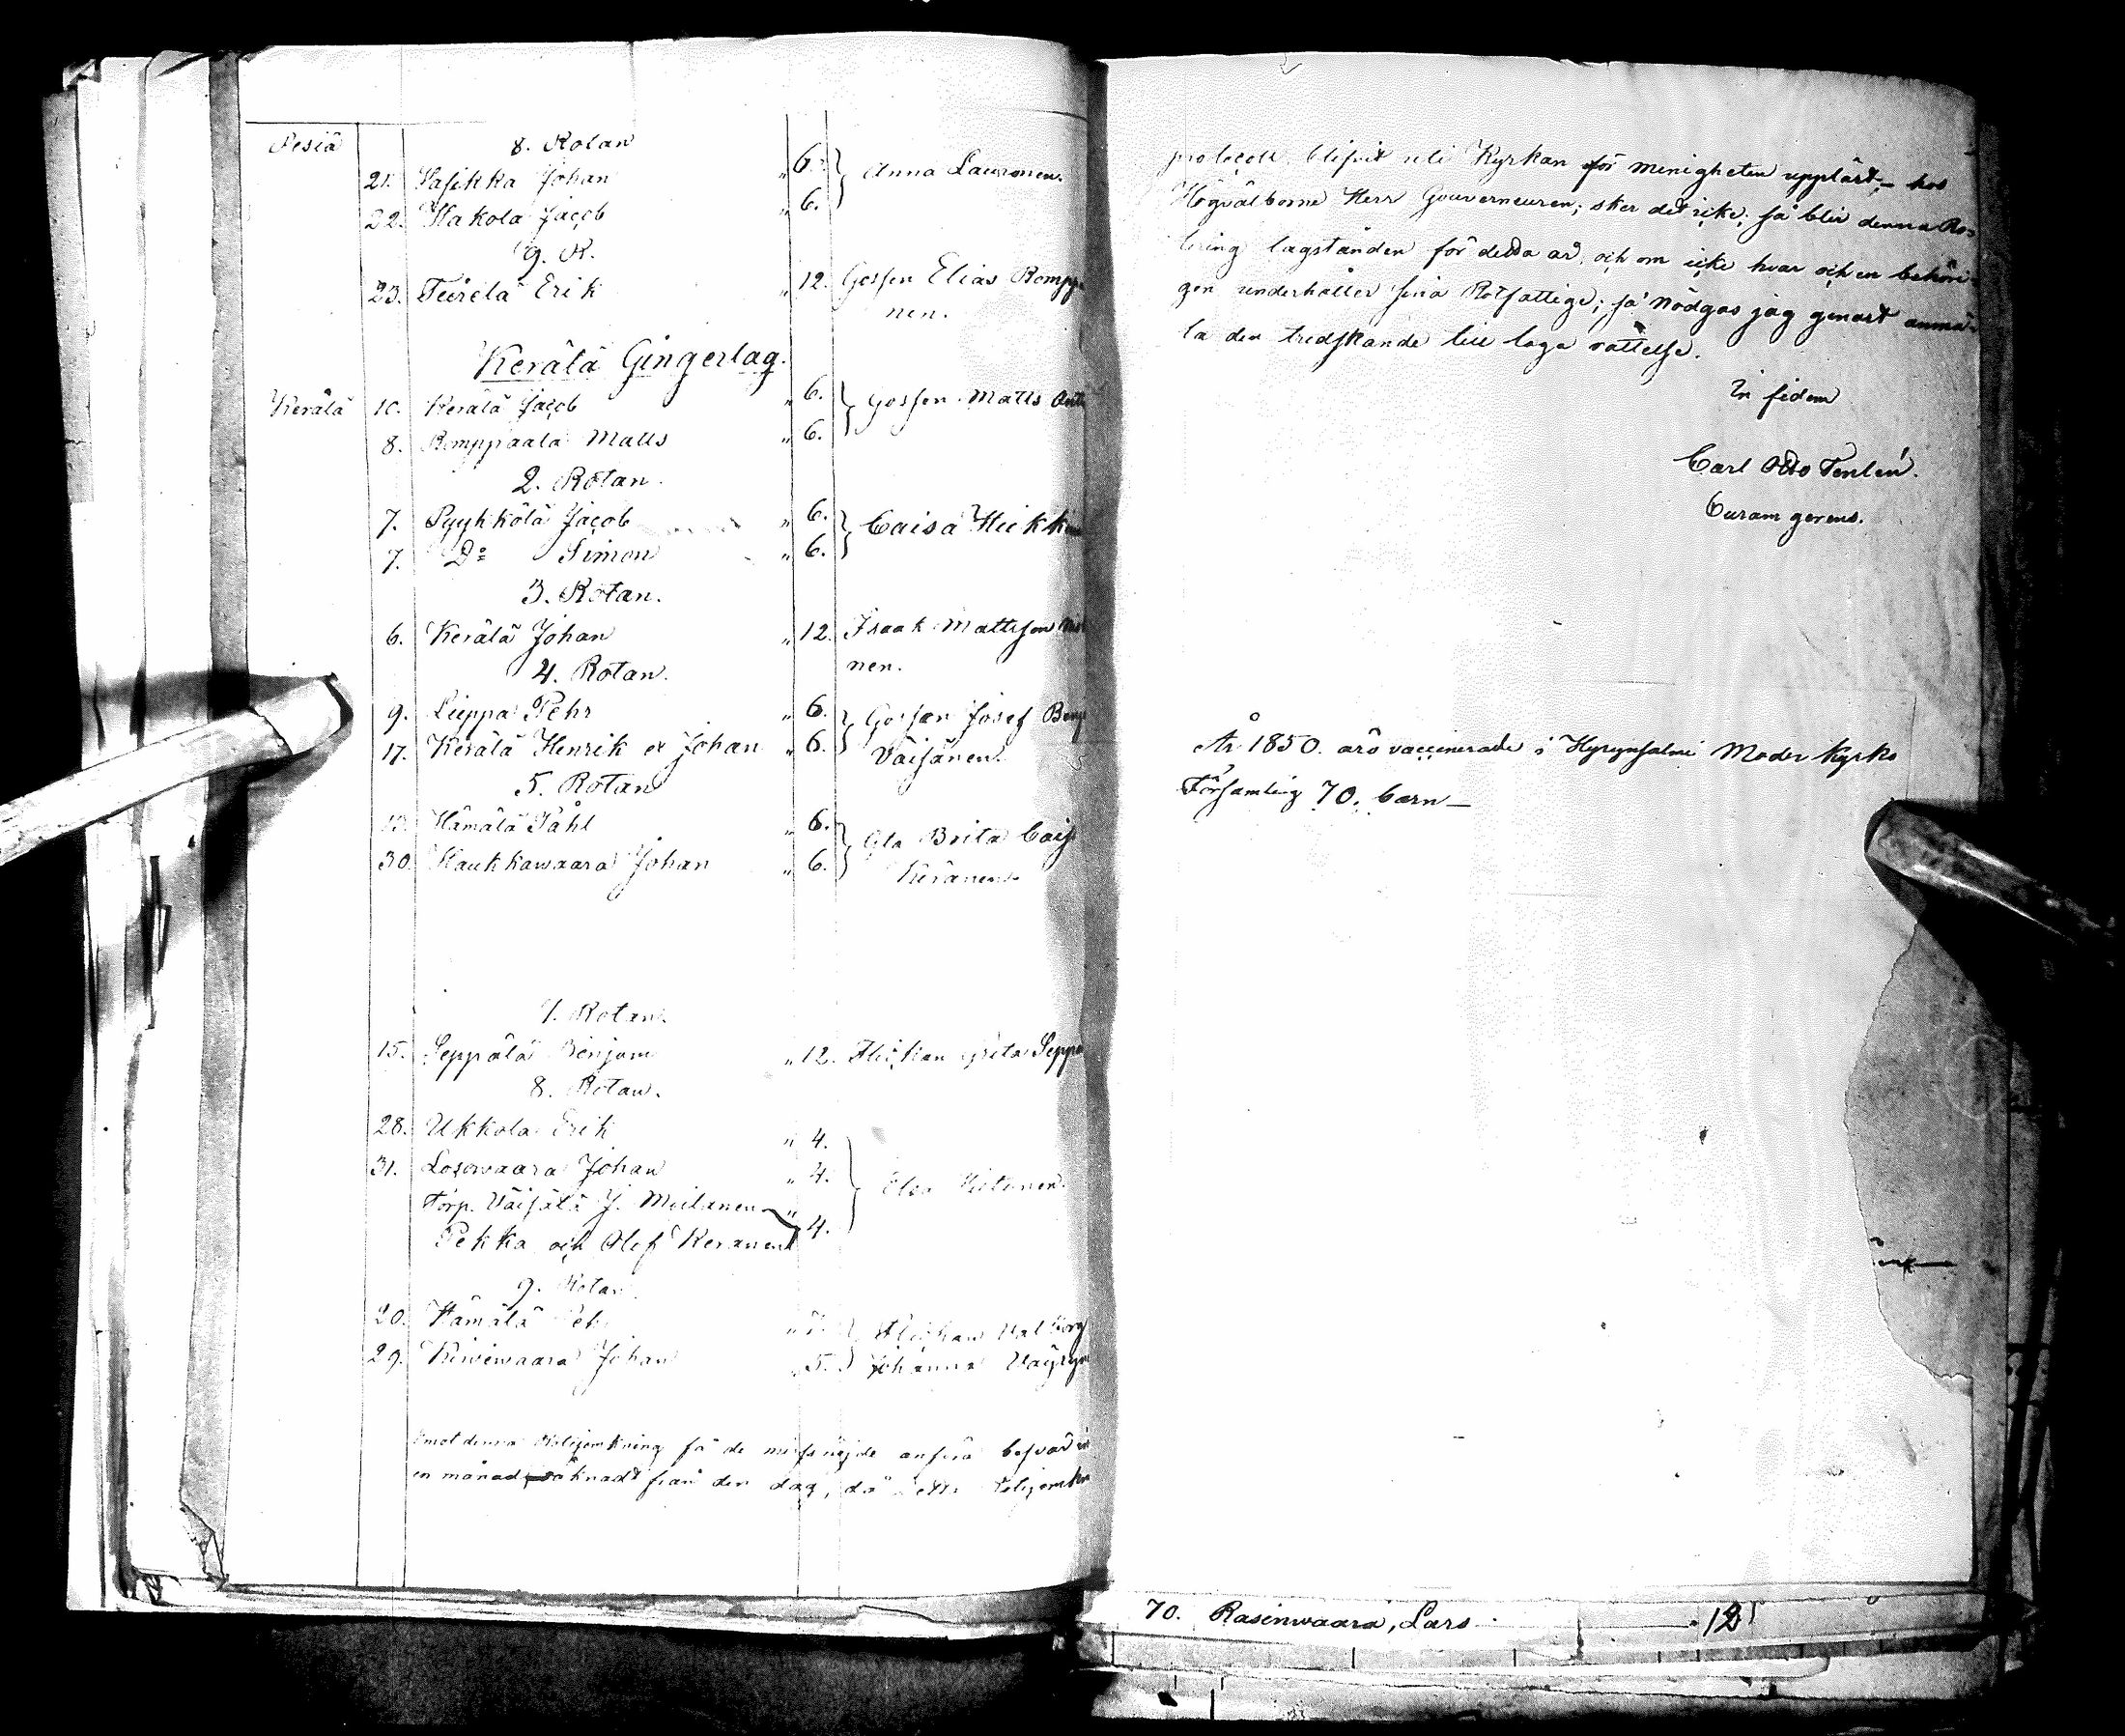 Pesiä
8. Rotan
21. Saſikka Johan " 6. Anna Lauronen.
22. Hakola Jacob " 6.
9. R.
23. Teirelä Erik " 12. Gossen Elias Romp
nen.
Kerälä Gingerlag.
Kerälä 10. Kerälä Jacob " 6. Gossen Matts
8. Romppaala Matts " 6.
2. Rotan.
7. Pyykkölä Jacob " 6. Caisa
7. Do Simon " 6.
3. Rotan.
6. Kerälä Johan " 12. Isaak Mattsson
nen.
4. Rotan.
9. Lieppa Pehr " 6. Gossen Josef
17. Kerälä Henrik et Johan " 6. Väisänen.
5. Rotan
Hämälä Påhl " 6. Gla Brita Caiſ
30. Kaukkawaara Johan " 6. Keränen.
7. Rotan.
15. Seppälä Benjam " 12. Flickan Greta Seppä
8. Rotan.
28. Ukkola Erik " 4.
31. Losowaara Johan " 4. Elsa
Torp. Väisälä J. Moilanen "
Pekka och Olof Keränen 4.
9. Rotan.
20. Hämälä " Flickan Valborg
29. Kiwiwaara Johan " 5. Johanna Väyryn
emot denna få de missnöjde anföra besvär
en månad räknadt från den dag, då
protocoll blifvit uti Kyrkan för menigheten uppläst, – hos
Högvälborne Herr Gouverneuren; sker det icke; så blir denna Ro=
tering lagstånden för detta år, och om icke hvar och en behöri=
gen underhåller sina Rotfattige; så nödgas jag genast anmä=
la den tredskande till laga rättelse.
In fidem
Carl Otto Tenlén.
Curam gerens.
År 1850. äro vaccinerade i Hyrynsalmi Moder Kyrko
Församling 70. barn –
70. Rasinwaara, Lars 12